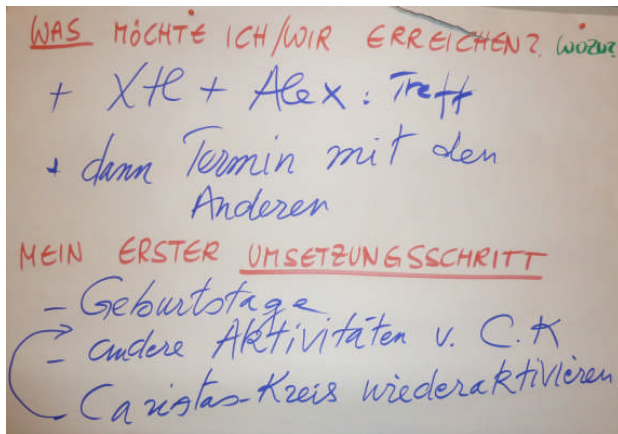 WAS MÖCHTE ICH/WIR ERREICHEN? WOZU?
+ XH + Alex: Treff
+ dann Termin mit den
Anderen
MEIN ERSTER UMSETZUNGSSCHRITT
- Geburtstage
- andere Aktivitäten v. C.K
- Caristas-Kreis wiederaktivieren